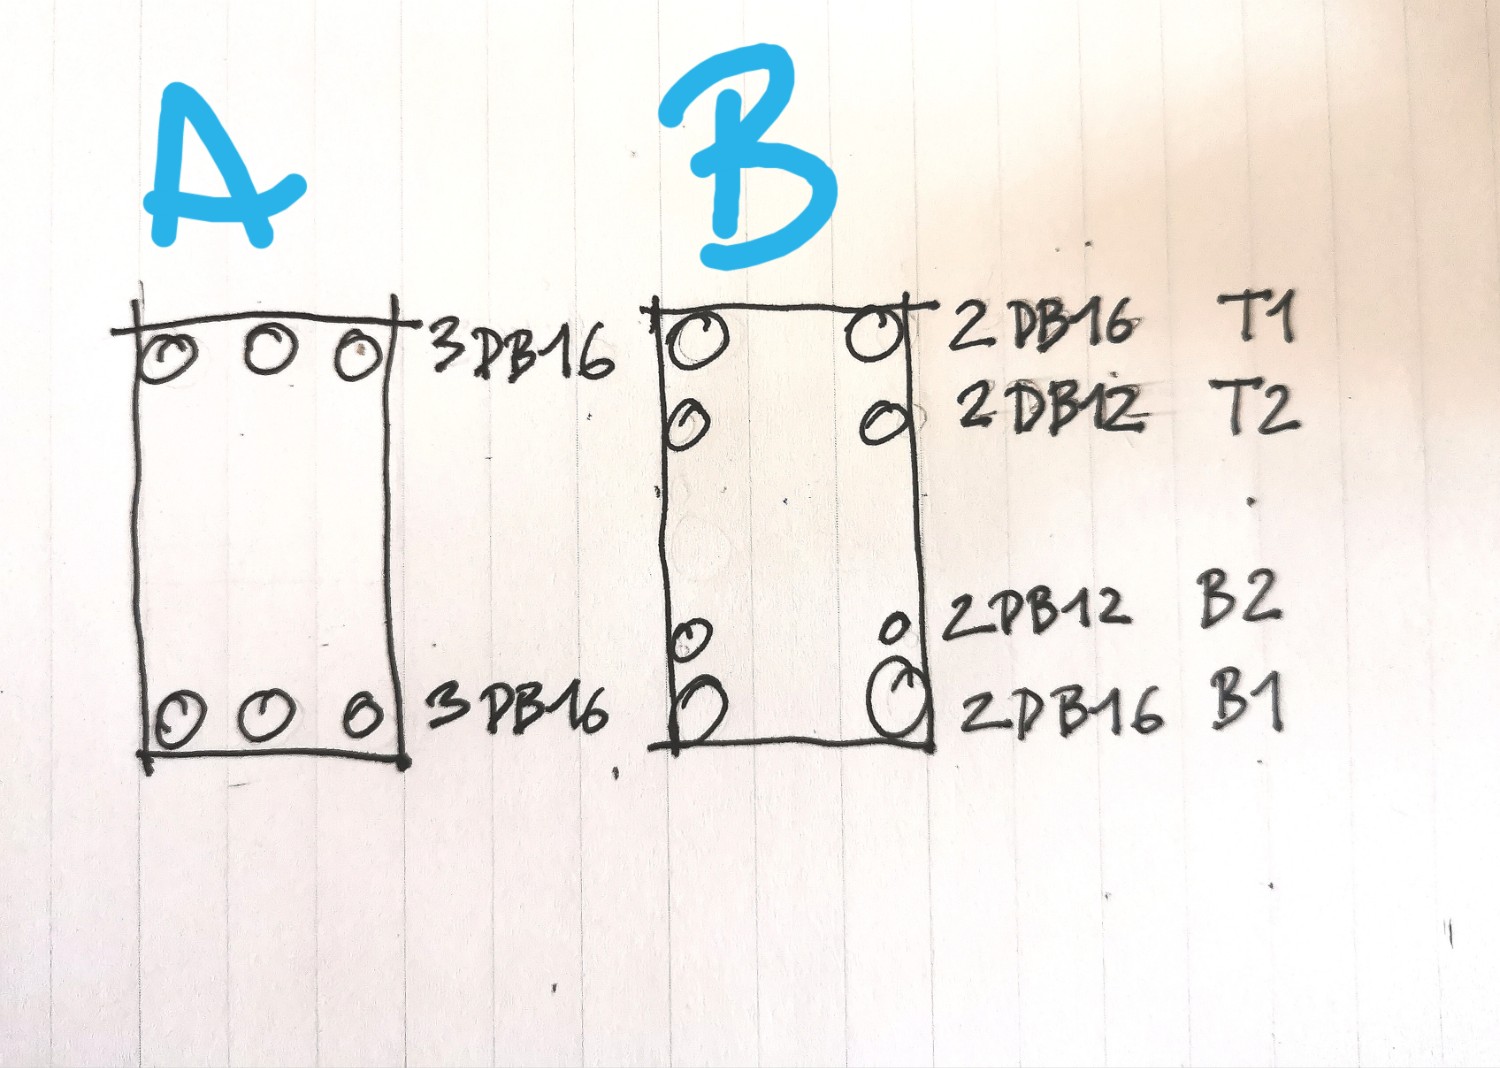 A
B
3DB16
3DB16
2DB16 T1
2DB12 T2
2DB12 B2
2DB16 B1